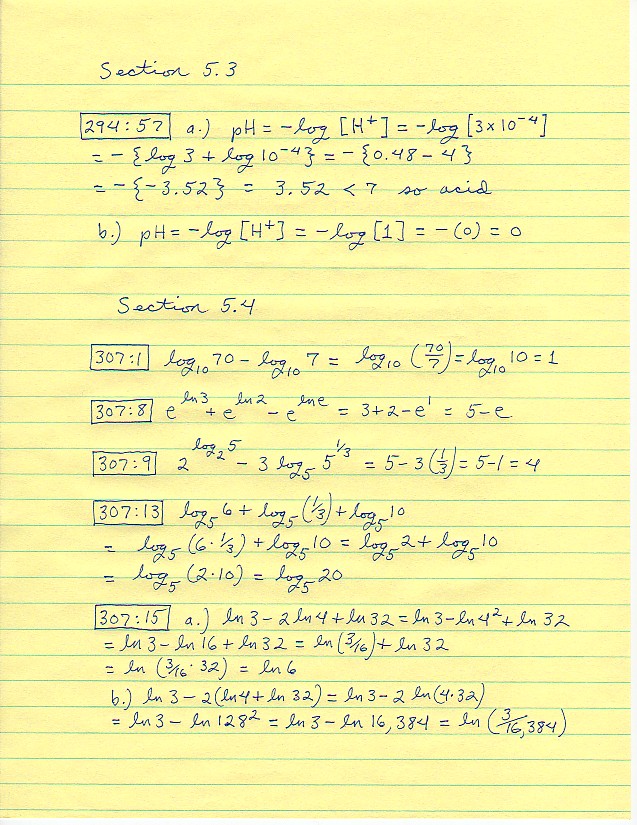 Section 5.3
294:57 a.) pH = -log [H⁺] = -log [3×10⁻⁴]
= -{log 3 + log 10⁻⁴} = -{0.48 - 4}
= -{-3.52} = 3.52 < 7 so acid
b.) pH = -log [H⁺] = -log [1] = -(0) = 0
Section 5.4
307:1 log₁₀ 70 - log₁₀ 7 = log₁₀ (70/7) = log₁₀ 10 = 1
307:8 e^(ln 3) + e^(ln 2) - e^(ln e) = 3+2-e¹ = 5-e
307:9 2^(log₂ 5) - 3 log₅ 5^(1/3) = 5-3(1/3) = 5-1 = 4
307:13 log₅ 6 + log₅ (1/3) + log₅ 10
= log₅ (6·1/3) + log₅ 10 = log₅ 2 + log₅ 10
= log₅ (2·10) = log₅ 20
307:15 a.) ln 3 - 2 ln 4 + ln 32 = ln 3 - ln 4² + ln 32
= ln 3 - ln 16 + ln 32 = ln (3/16) + ln 32
= ln (3/16 · 32) = ln 6
b.) ln 3 - 2(ln 4 + ln 32) = ln 3 - 2 ln (4·32)
= ln 3 - ln 128² = ln 3 - ln 16,384 = ln (3/16,384)